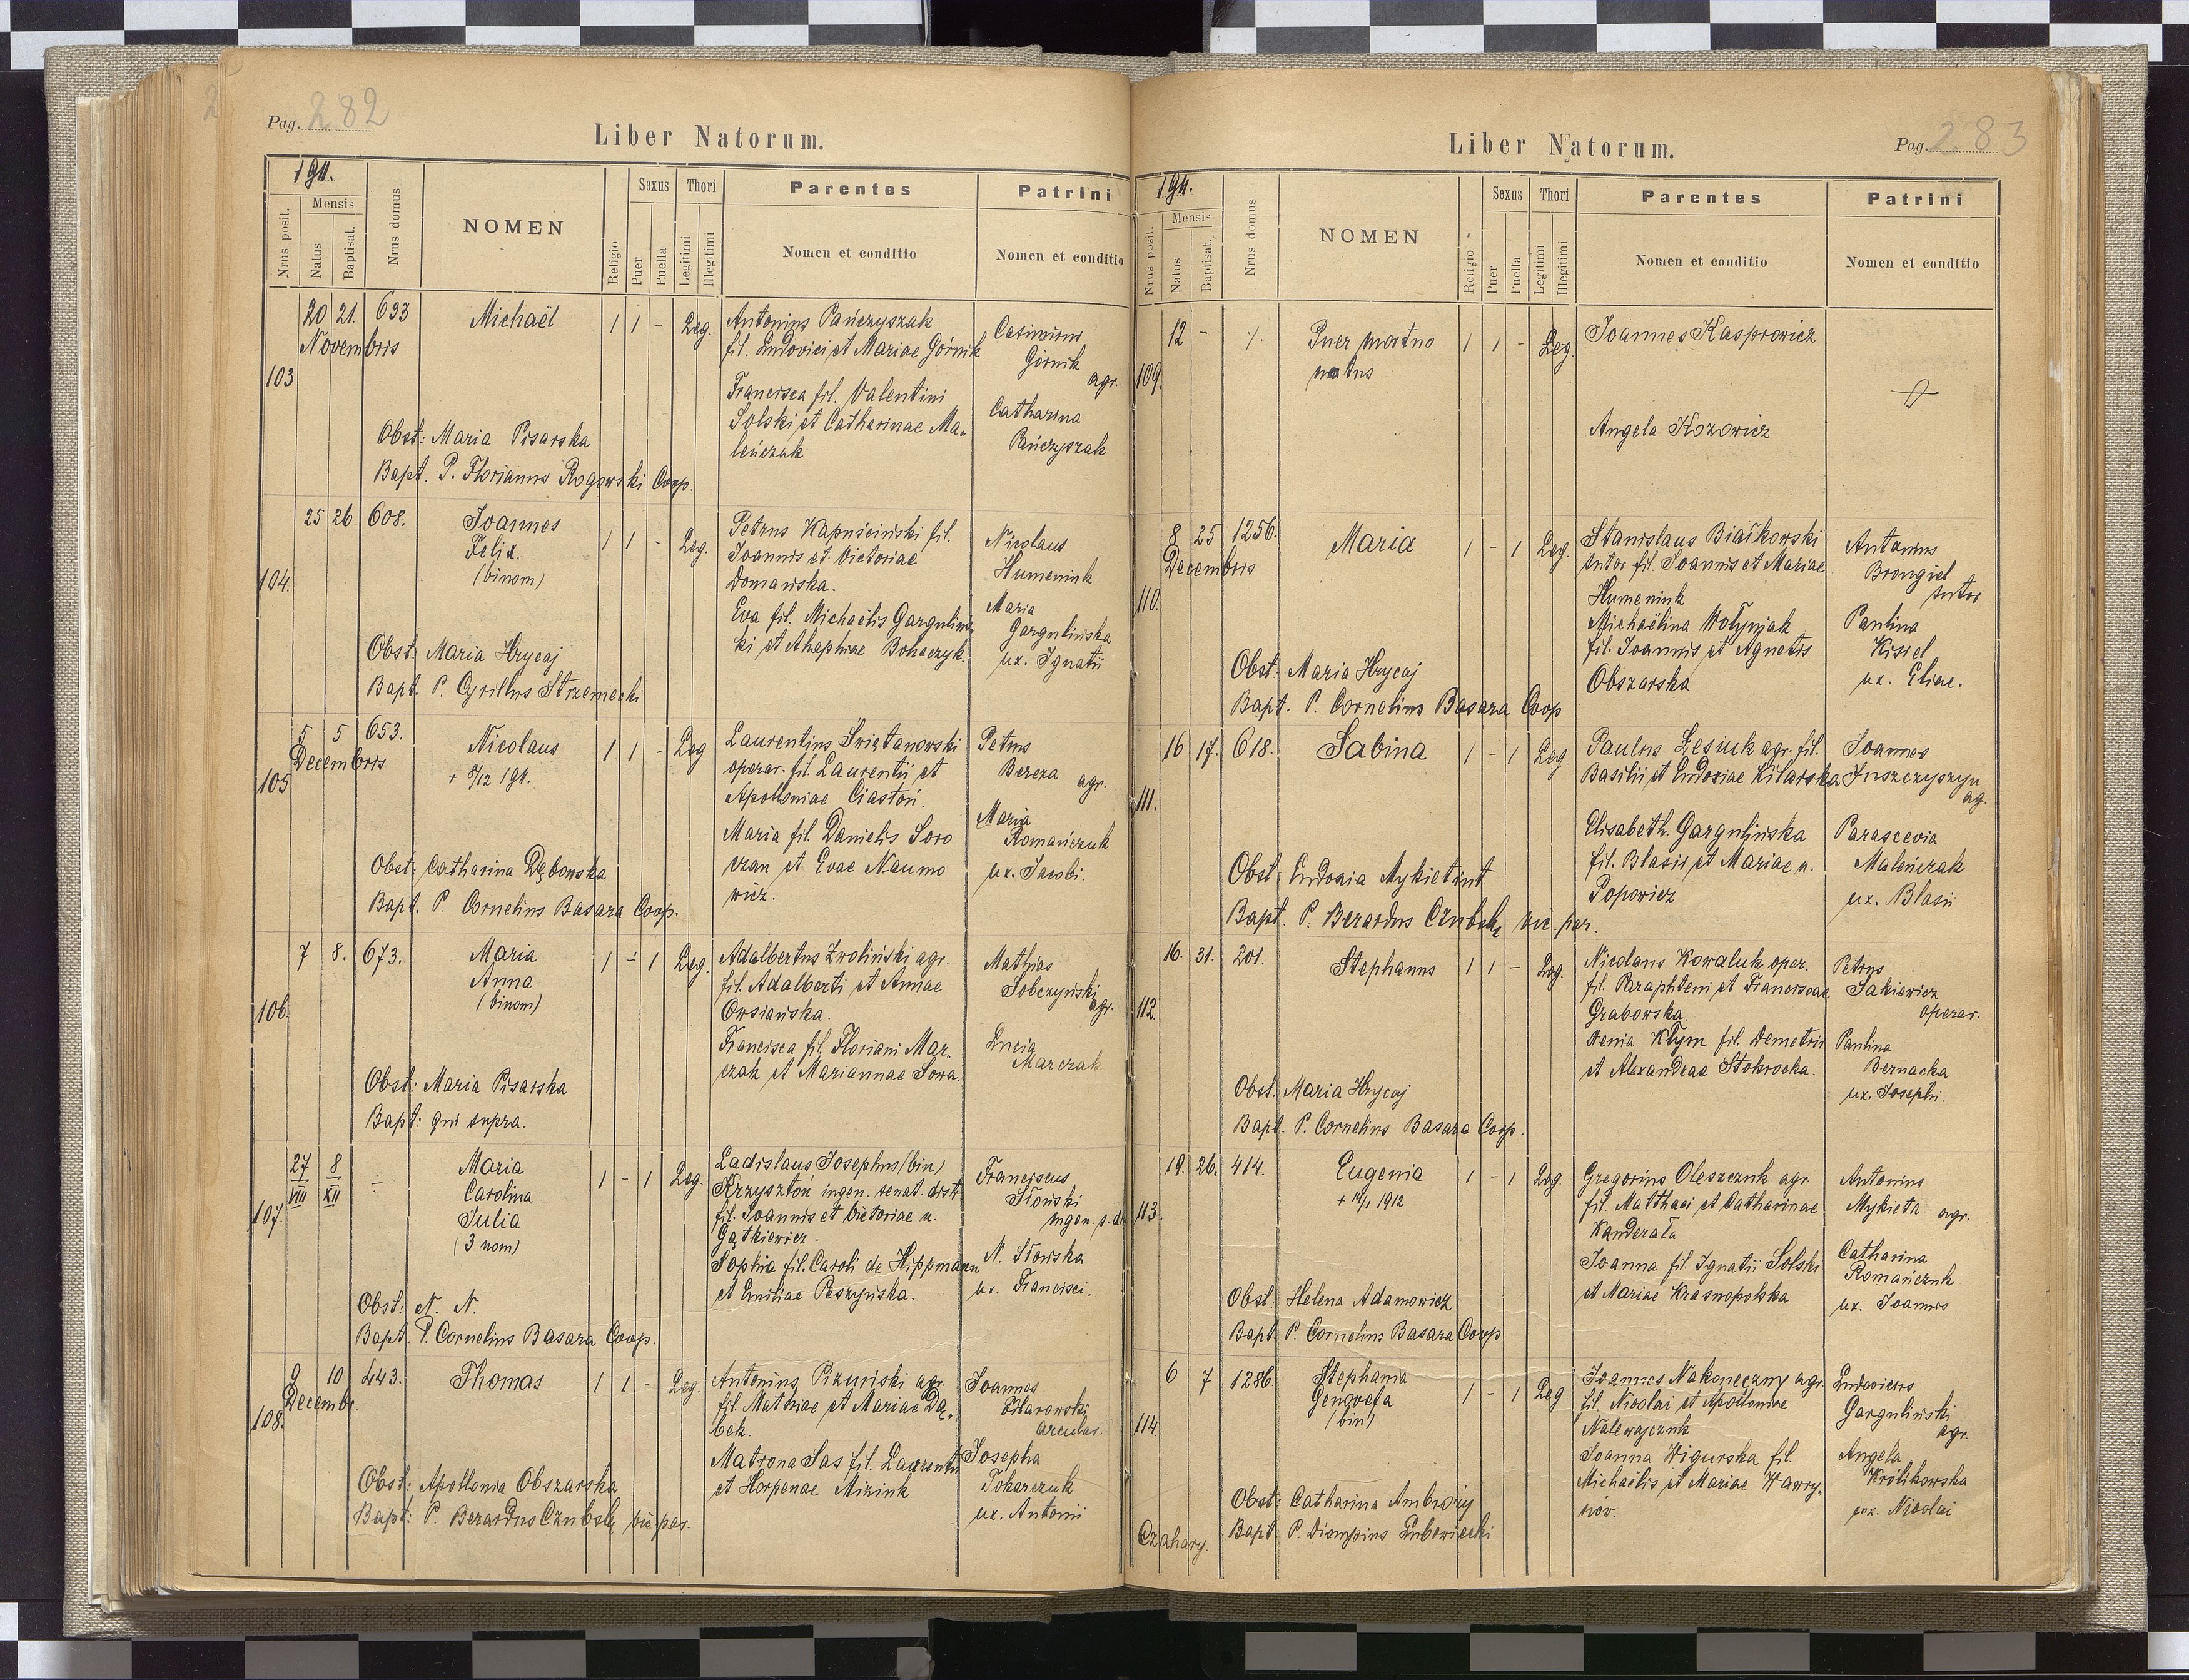 Pag. 282
Liber Natorum.
1911.
Nrus posit.
Mensis
Natus
Baptisat.
Nrus domus
NOMEN
Religio
Sexus
Puer
Puella
Thori
Legitimi
Illegitimi
Parentes
Nomen et conditio
Patrini
Nomen et conditio
103
20 21. 633
Novembris
Michaël
1 1 - Leg.
Antonius Pańczyszak
fil. Ludovici et Mariae Górnik
Francisca fil. Valentini
Solski et Catharinae Ma-
leńczak
Casimirus
Górnik
agr.
Catharina
Pańczyszak
Obst: Maria Pisarska
Bapt. P. Florianus Rogowski Coop.
104.
25 26. 608.
Joannes
Felix.
(binom)
1 1 - Leg.
Petrus Kapuściński fil.
Joannis et Victoriae
Domańska.
Eva fil. Michaëlis Gargulińs-
ki et Ahaphiae Bohaczyk.
Nicolaus
Humeniuk
Maria
Gargulińska
ux. Ignatii
Obst: Maria Hrycaj
Bapt. P. Cyrillus Strzemecki
105
5 5 653.
Decembris
Nicolaus
+ 8/12 1911.
1 1 - Leg
Laurentius Świętanowski
operar. fil. Laurentii et
Apolloniae Ciastoń.
Maria fil. Danielis Soro
czan et Evae Naumo
wicz.
Petrus
Bereza
agr.
Maria
Romańczuk
ux. Jacobi.
Obst: Catharina Dębowska
Bapt. P. Cornelius Basara Coop.
106.
7 8. 673.
Maria
Anna
(binom)
1 - 1 Leg.
Adalbertus Zwoliński agr.
fil. Adalberti et Annae
Owsiańska.
Francisca fil. Floriani Mar-
czak et Mariannae Sowa.
Mathias
Sobczyński
agr.
Lucia
Marczak
Obst: Maria Pisarska
Bapt: qui supra.
107.
27 8
VIII XII
÷
Maria
Carolina
Julia
(3 nom)
1 - 1 Leg.
Ladislaus Josephus (bin)
Krzysztoń ingen. senat. distr.
fil. Joannis et Victoriae n.
Gątkiewicz.
Sophia fil. Caroli de Hippmann
et Emiliae Peszyńska.
Franciscus
Słoński
ingen. s. d.
N. Słońska
ux. Francisci.
Obst: N. N.
Bapt. P. Cornelius Basara Coop.
108.
9 10 443.
Decembr.
Thomas
1 1 - Leg.
Antonius Pizuński agr.
fil. Mathiae et Mariae Dą-
bek.
Matrona Sas fil. Laurentii
et Horpenae Miziuk
Joannes
Pilarowski
arcular.
Josepha
Tokarczuk
ux. Antonii
Obst: Apollonia Obszarska
Bapt: P. Berardus Czubek vic par.
Liber Natorum.
Pag. 283
1911.
Nrus posit.
Mensis
Natus
Baptisat.
Nrus domus
NOMEN
Religio
Sexus
Puer
Puella
Thori
Legitimi
Illegitimi
Parentes
Nomen et conditio
Patrini
Nomen et conditio
109.
12 -
Puer mortuo
natus
1 1 - Leg.
Joannes Kasprowicz
Angela Kozowicz
110.
8 25 1256.
Decembris
Maria
1 - 1 Leg.
Stanislaus Białkowski
sutor fil. Joannis et Mariae
Humeniuk
Michaëlina Wołyńjak
fil. Joannis et Agnetis
Obszarska
Antonius
Brongiel
sutor
Paulina
Kisiel
ux. Eliae.
Obst: Maria Hrycaj
Bapt. P. Cornelius Basara Coop
111.
16 17. 618.
Sabina
1 - 1 Leg.
Paulus Łesiuk agr. fil.
Basilii et Eudoxiae Kilarska
Elisabeth. Gargulińska
fil. Blasii et Mariae n.
Popowicz
Joannes
Juszczyszyn
agr.
Parascevia
Maleńczak
ux. Blasii
Obst: Eudoxia Mykietiut
Bapt. P. Berardus Czubek vic. par.
112.
16. 31. 201.
Stephanus
1 1 - Leg.
Nicolaus Kowaluk oper.
fil. Paraphteni et Franciscae
Grabowska.
Xenia Kłym fil. Demetrii
et Alexandrae Stokrocka.
Petrus
Sakiewicz
operar.
Paulina
Bernacka
ux. Josephi.
Obst: Maria Hrycaj
Bapt. P. Cornelius Basara Coop.
113.
19. 26. 414.
Eugenia
1 - 1 Leg.
Gregorius Oleszczuk agr.
fil. Matthaei et Catharinae
Kanderała
Joanna fil. Ignatii Solski
et Mariae Krasnopolska
Antonius
Mykieta agr.
Catharina
Romańczuk
ux. Joannis
Obst: Helena Adamowicz
Bapt. P. Cornelius Basara Coop
114.
6 7 1286.
Stephania
Genovefa
(bin)
1 - 1 Leg.
Joannes Nakoneczny agr.
fil. Nicolai et Apolloniae
Nalewajczuk
Joanna Wigurska fil.
Michaëlis et Mariae Wawry-
nów.
Ludovicus
Garguliński
agr.
Angela
Królikowska
ux. Nicolai
Obst: Catharina Ambroży
Czahary. Bapt. P. Dionysius Lubowiecki